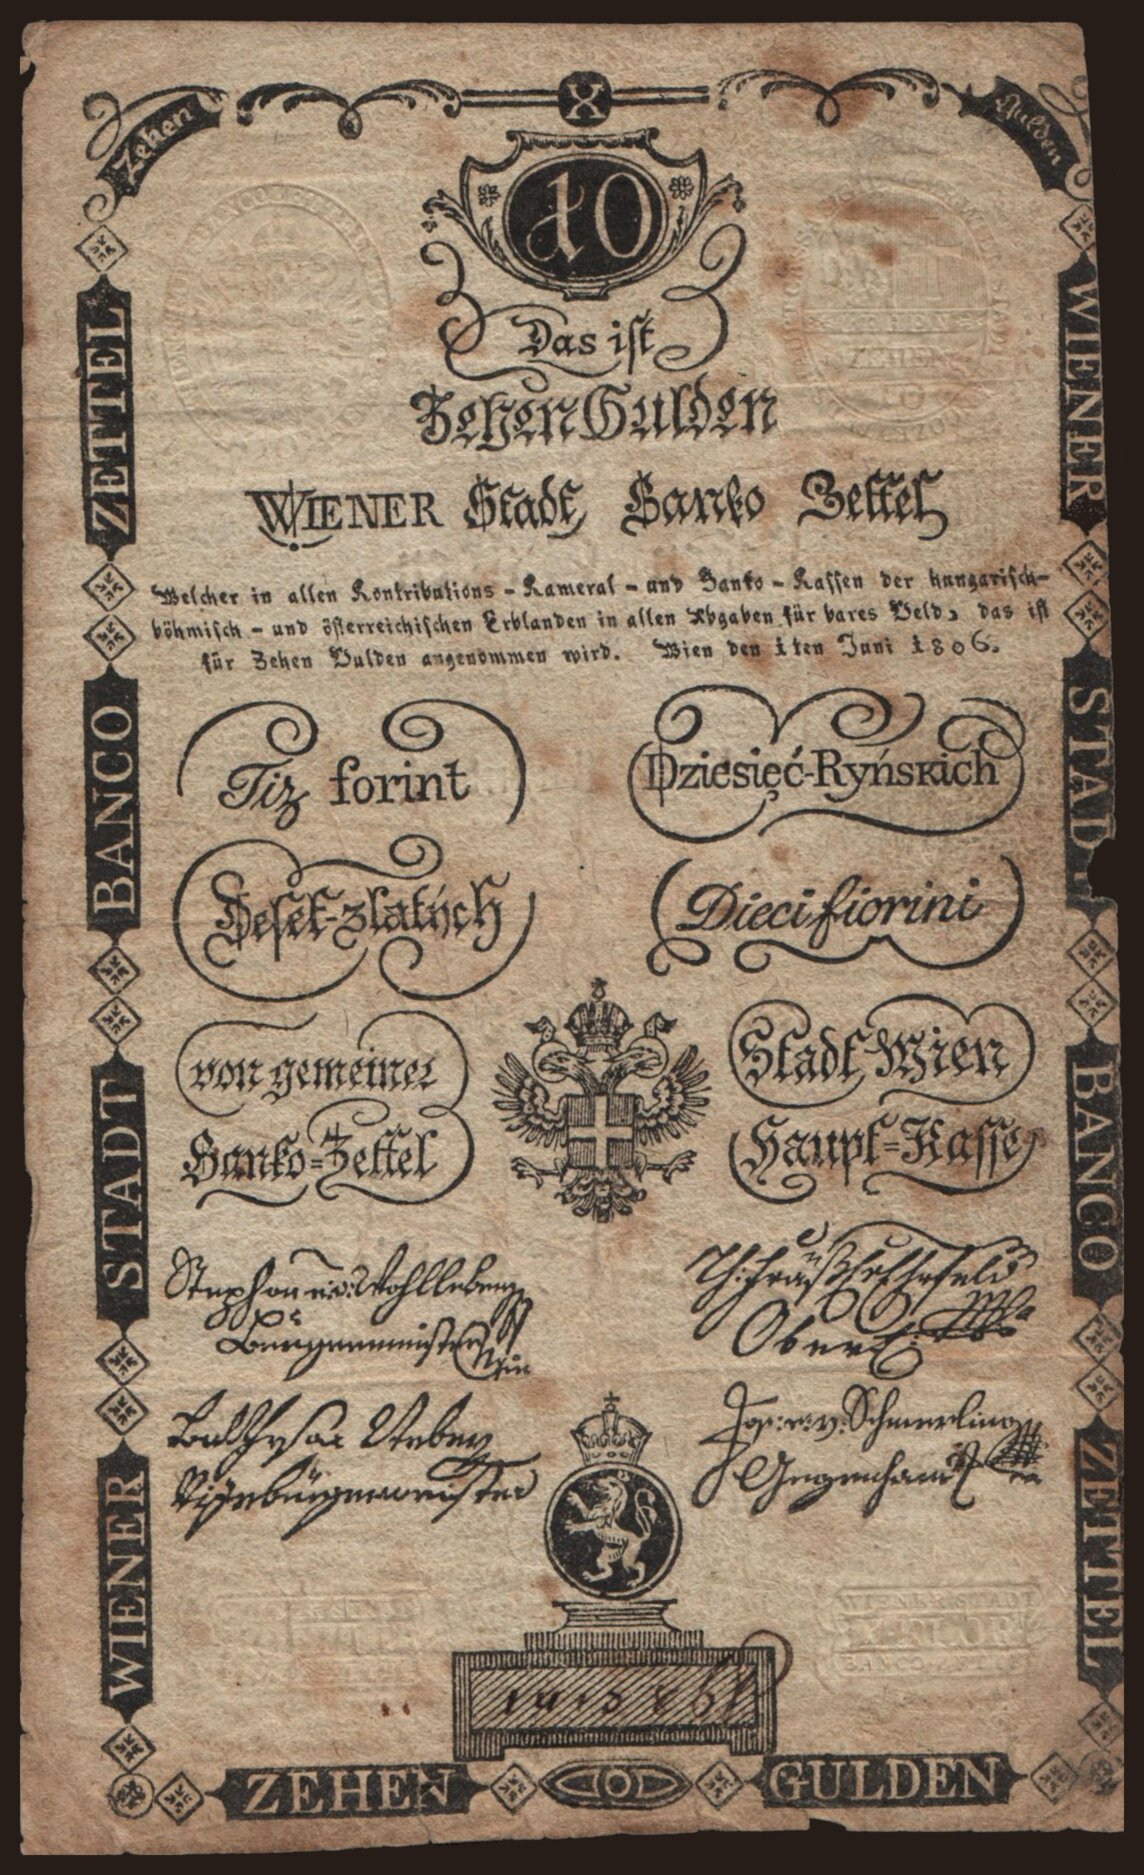 Zehen
X
Gulden
10
Das ist
Zehen Gulden
WIENER Stadt Banko Zettel
Welcher in allen Kontributions - Kameral - und Banko - Kassen der hungarisch-
böhmisch - und österreichischen Erblanden in allen Abgaben für bares Geld, das ist
für Zehen Gulden angenommen wird. Wien den 1ten Juni 1806.
Tiz forint
Dziesięć-Ryńskich
Deset-zlatých
Dieci fiorini
von gemeiner
Stadt Wien
Banko=Zettel
Haupt=Kasse
Stephan v: Wohlleben
Burgermeister
Ober
Jos: v: Schmerling
Gegenhand
Vizebürgermeister
ZETTEL
BANCO
STADT
WIENER
WIENER
STADT
BANCO
ZETTEL
ZEHEN
GULDEN
ZEHEN
WIENER STADT